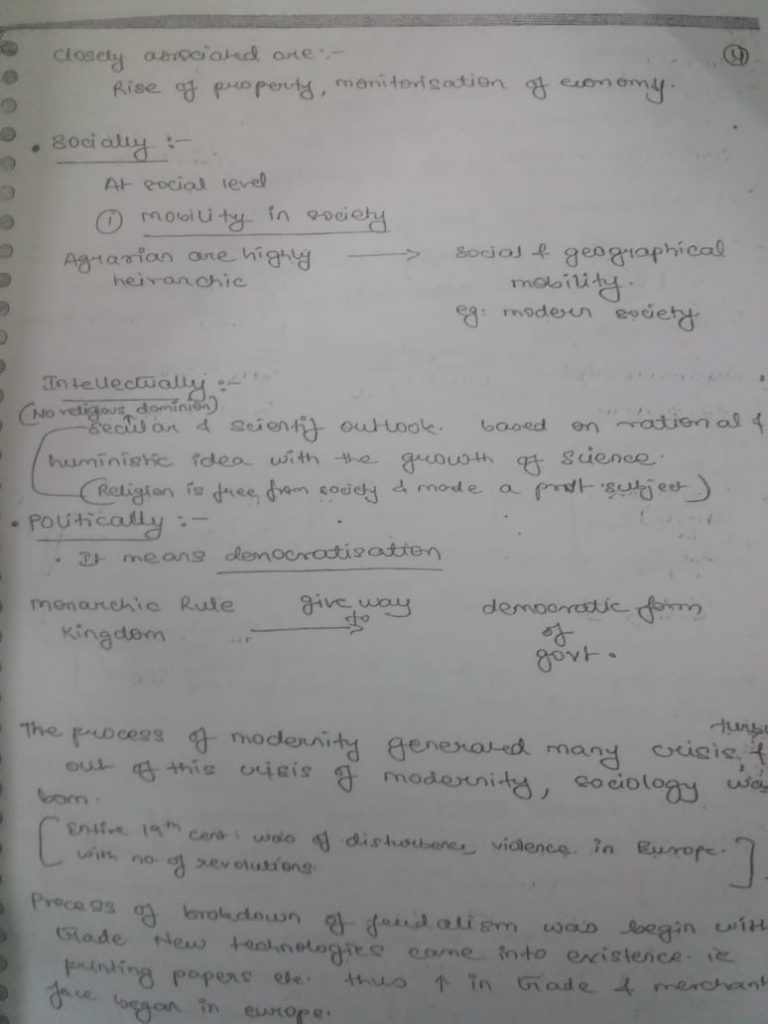 ④
closely associated are :-
Rise of property, monitorisation of economy.
• Socially :-
At social level
① mobility in society
Agrarian are highly ⟶ social & geographical
heirarchic mobility.
eg: modern society
Intellectually :-
(No religious dominion)
secular & scientif outlook. based on rational &
huministic idea with the growth of science.
(Religion is free from society & made a subject)
• Politically :-
• It means democratisation
monarchic Rule give way democratic form
Kingdom to ⟶ of
govt.
The process of modernity generated many crisis, &
out of this crisis of modernity, sociology was
born.
[Entire 19th cent: was of disturbence, violence in Europe.
with no of revolutions.]
Process of brokdown of feudalism was begin with
trade New technologies came into existence. ie
printing papers etc. thus ↑ in trade & merchant
face began in europe.